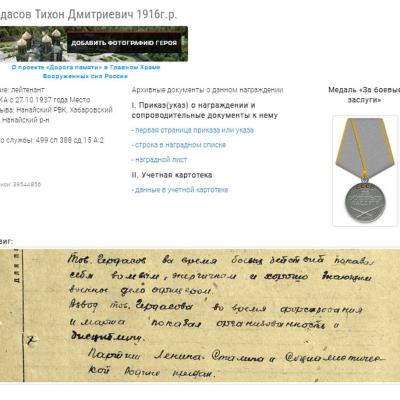 дасов Тихон Дмитриевич 1916г.р.
ДОБАВИТЬ ФОТОГРАФИЮ ГЕРОЯ
О проекте «Дорога памяти» в Главном Храме
Вооруженных сил России
ие: лейтенант
КА с 27.10.1937 года Место
ыва: Нанайский РВК, Хабаровский
Нанайский р-н
о службы: 499 сп 388 сд 15 А 2
писи: 39544856
Архивные документы о данном награждении
I. Приказ(указ) о награждении и
сопроводительные документы к нему
- первая страница приказа или указа
- строка в наградном списке
- наградной лист
II. Учетная картотека
- данные в учетной картотеке
Медаль «За боевые
заслуги»
виг:
Тов. Гердасов во время боевых действий показал
себя волевым, энергичным и хорошо знающим
военное дело офицером.
Взвод тов. Гердасова во время форсирования
и марша показал организованность и
дисциплину.
Партии Ленина-Сталина и Социалистичес-
кой Родине предан.